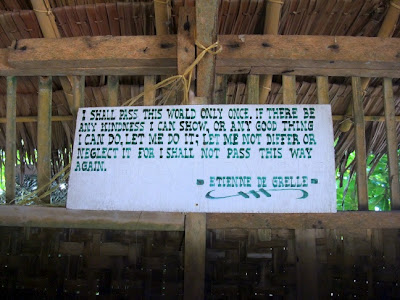 I SHALL PASS THIS WORLD ONLY ONCE. IF THERE BE
ANY KINDNESS I CAN SHOW, OR ANY GOOD THING
I CAN DO, LET ME DO IT; LET ME NOT DIFFER OR
NEGLECT IT FOR I SHALL NOT PASS THIS WAY
AGAIN.
- ETIENNE DE GRELLE -